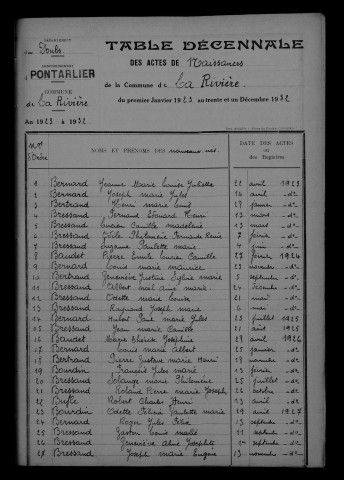 DÉPARTEMENT
du Doubs
ARRONDISSEMENT
PONTARLIER
COMMUNE
de La Rivière
An 1923 à 1932
TABLE DÉCENNALE
DES ACTES DE Naissances
de la Commune de La Rivière
du premier Janvier 1923 au trente et un Décembre 1932
Nos d'Ordre NOMS ET PRÉNOMS DES nouveaux nés DATE DES ACTES ou des Registres
1 Bernard Jeanne Marie Louise Juliette 22 avril 1923
2 Bernard Joseph Marie Jules 14 avril do
3 Bertrand Henri Marie Louis 28 janvier do
4 Bressand Fernand Edouard Henri 13 mars do
5 Bressand Lucien Camille Madeleine 13 mars do
6 Bressand Philomène Fernande Renée 2 septembre do
7 Bressand Suzanne Paulette Marie 4 juin do
8 Baudet Pierre Emile Lucien Camille 27 février 1924
9 Bernard Louis Marie Maurice 23 novembre do
10 Bertrand Geneviève Justine Sylvie Marie 7 septembre do
11 Bressand Albert Paul Aimé Marie 24 décembre do
12 Bressand Odette Marie Louise 21 mai do
13 Bressand Raymond Joseph Marie 6 mai do
14 Bernard Hubert Paul Marie Jules 23 juillet 1925
15 Bressand Jean Marie Camille 21 août 1925
16 Baudet Marie Thérèse Joséphine 28 avril 1926
17 Bernard Louis Marie Albert 25 janvier do
18 Bertrand Pierre Gustave Marie Henri do
19 Bourdin François Jules Marie 13 février do
20 Bressand Solange Marie Philomène 25 juillet do
21 Bressand Roland Pierre Marie Joseph 24 octobre do
22 Robert Charles Henri 13 avril do
23 Bourdin Odette Céline Paulette Marie 29 avril 1927
24 Bernard Roger Jules Félix septembre do
25 Bressand Gaston Louis 11 septembre do
26 Bressand Geneviève Aline Joséphine 1er septembre do
27 Bressand Joseph Marie Eugène 13 novembre do